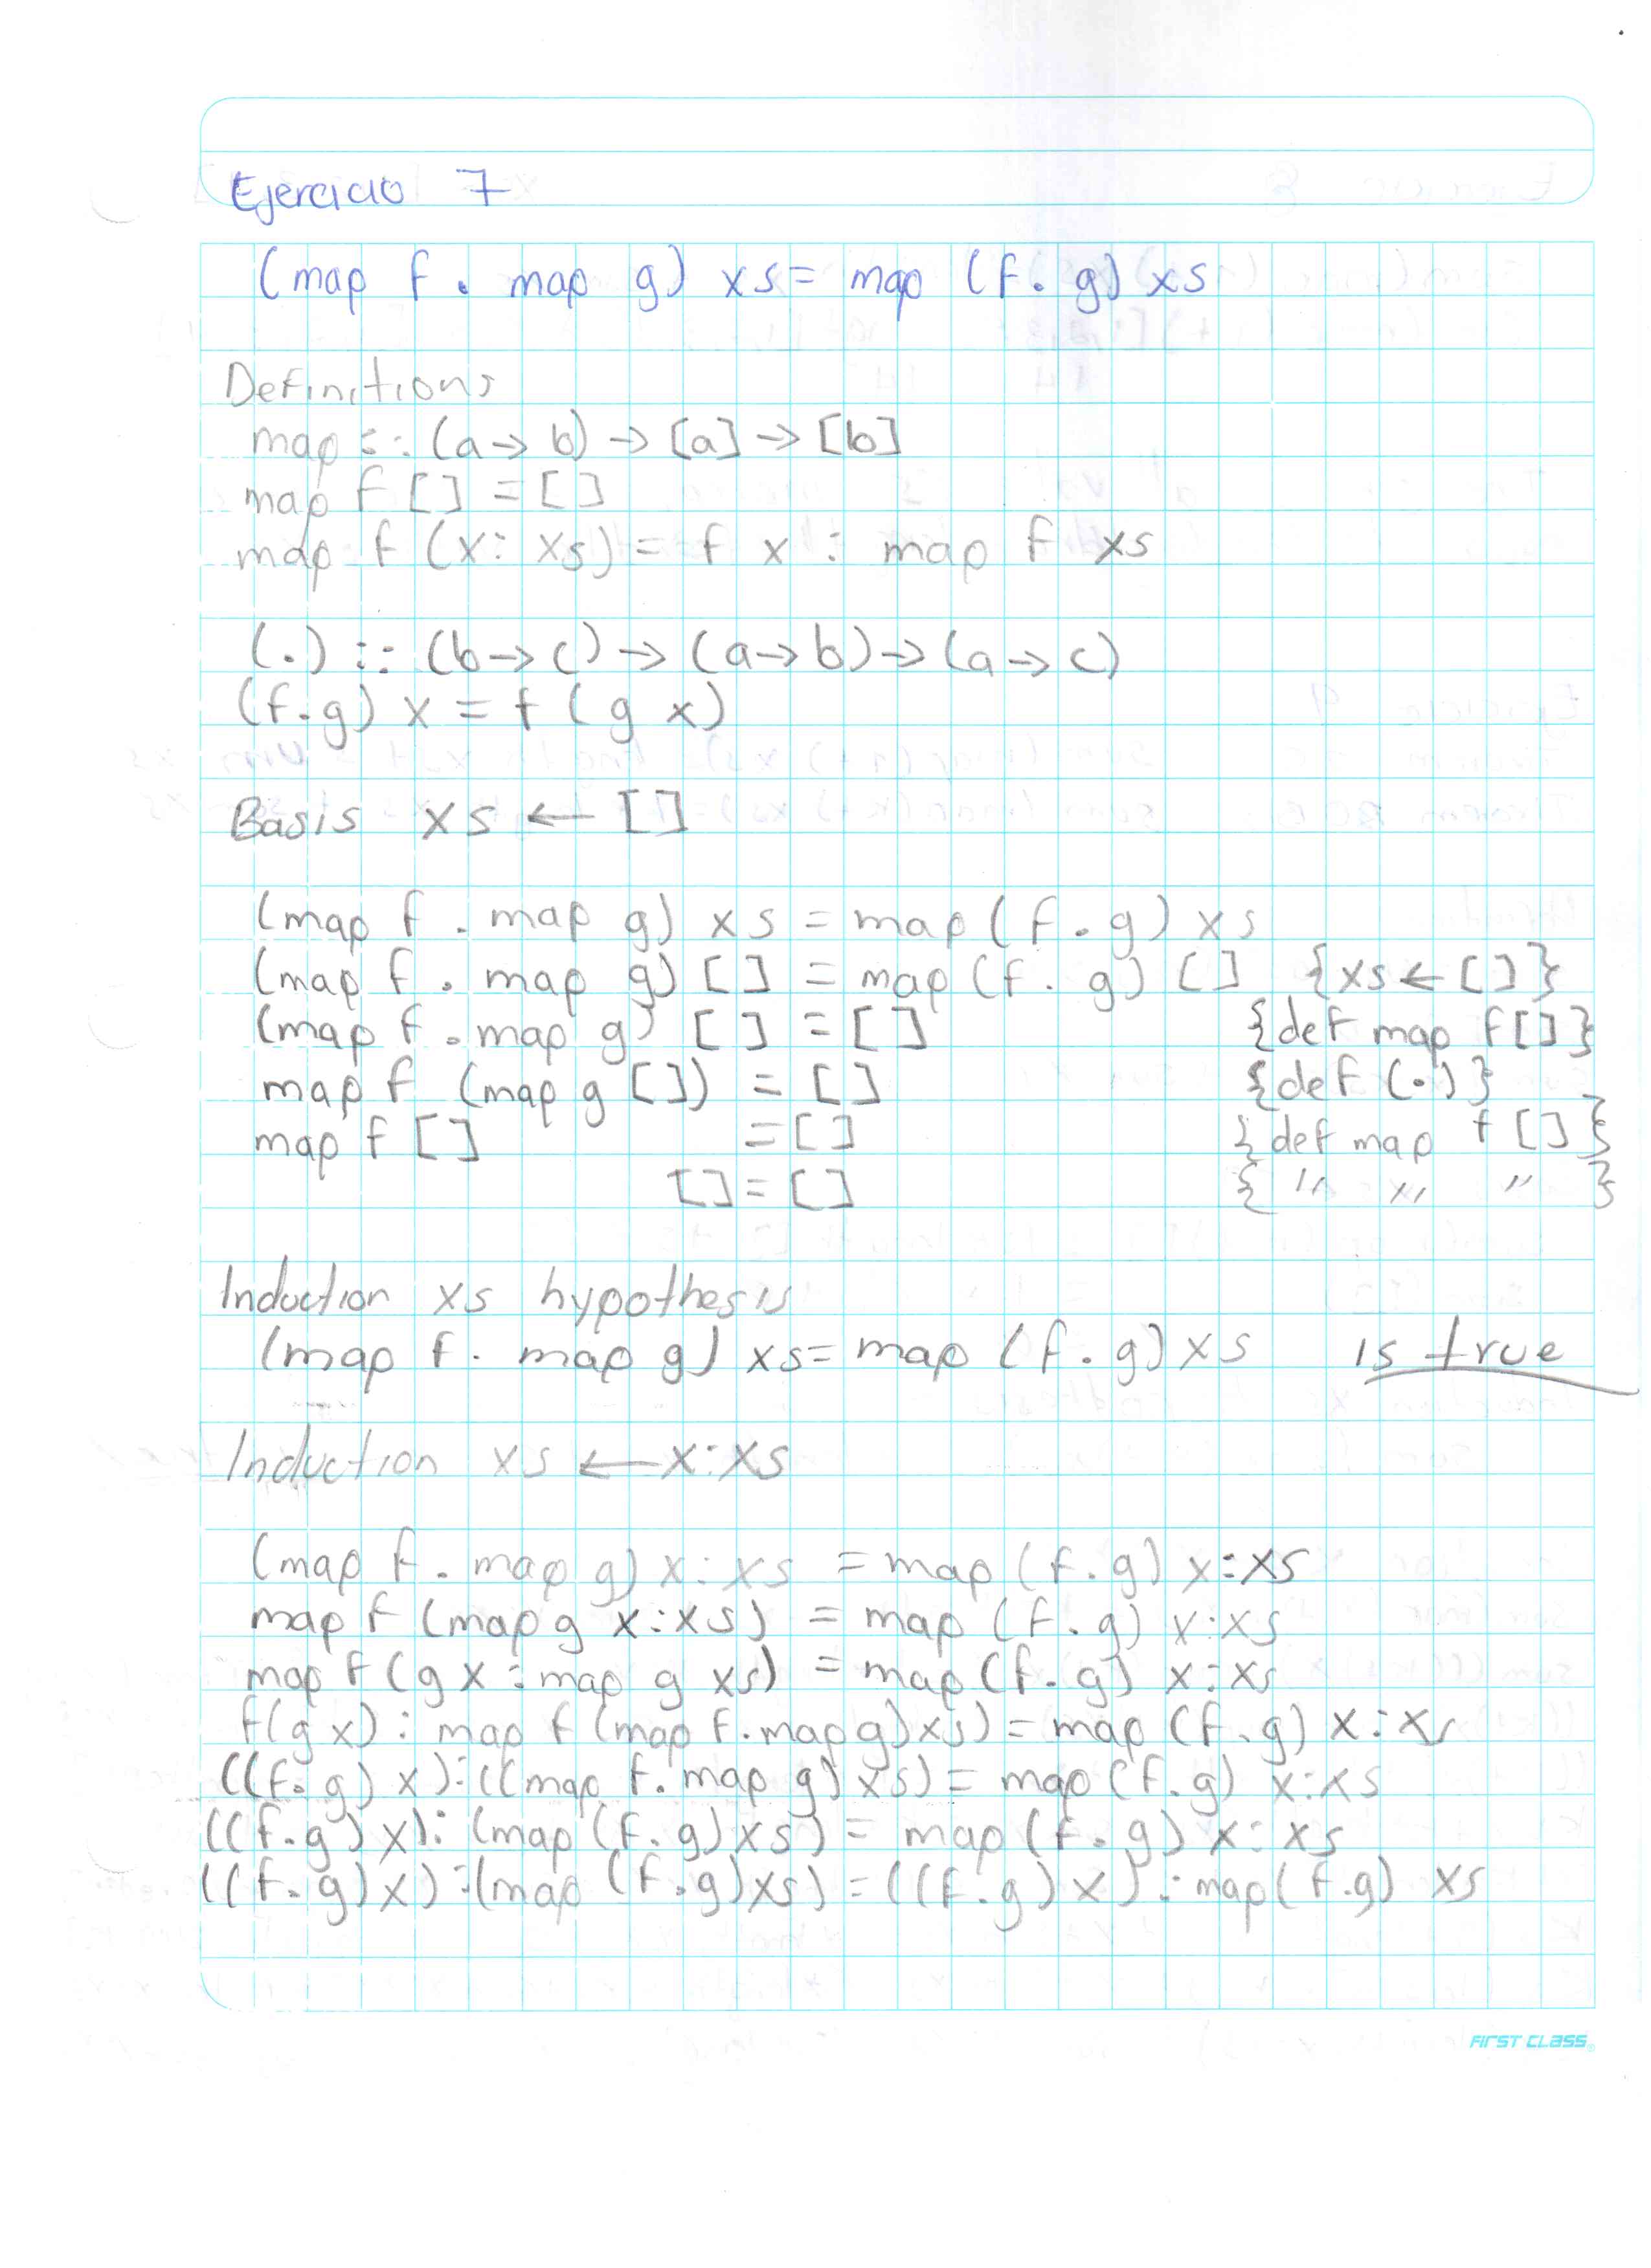 Ejercicio 7
(map f . map g) xs = map (f . g) xs
Definitions
map :: (a → b) → [a] → [b]
map f [] = []
map f (x : xs) = f x : map f xs
(.) :: (b → c) → (a → b) → (a → c)
(f.g) x = f (g x)
Basis xs ← []
(map f . map g) xs = map (f . g) xs
(map f . map g) [] = map (f . g) [] {xs ← []}
(map f . map g) [] = [] {def map f []}
map f (map g []) = [] {def (.)}
map f [] = [] {def map f []}
[] = [] { " " " }
Induction xs hypothesis
(map f . map g) xs = map (f . g) xs is true
Induction xs ← x:xs
(map f . map g) x:xs = map (f . g) x:xs
map f (map g x:xs) = map (f . g) x:xs
map f (g x : map g xs) = map (f . g) x:xs
f(g x) : map f (map f . map g) xs) = map (f . g) x:xs
((f . g) x) : ((map f . map g) xs) = map (f . g) x:xs
((f . g) x) : (map (f . g) xs) = map (f . g) x:xs
((f . g) x) : (map (f . g) xs) = ((f . g) x) : map (f . g) xs
FIRST CLASS